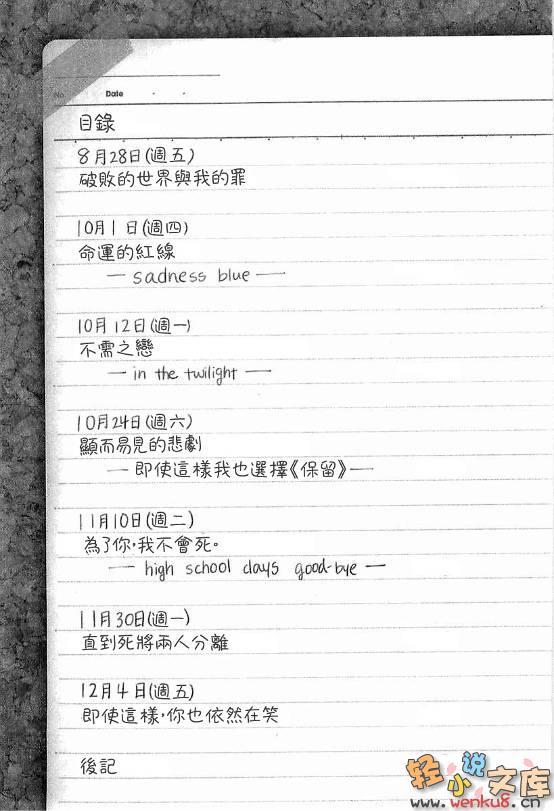 No.
Date
目錄
8月28日(週五)
破敗的世界與我的罪
10月1日(週四)
命運的紅線
— sadness blue —
10月12日(週一)
不需之戀
— in the twilight —
10月24日(週六)
顯而易見的悲劇
— 即使這樣我也選擇《保留》—
11月10日(週二)
為了你,我不會死。
— high school days good-bye —
11月30日(週一)
直到死將兩人分離
12月4日(週五)
即使這樣,你也依然在笑
後記
轻小说文库
www.wenku8.cn